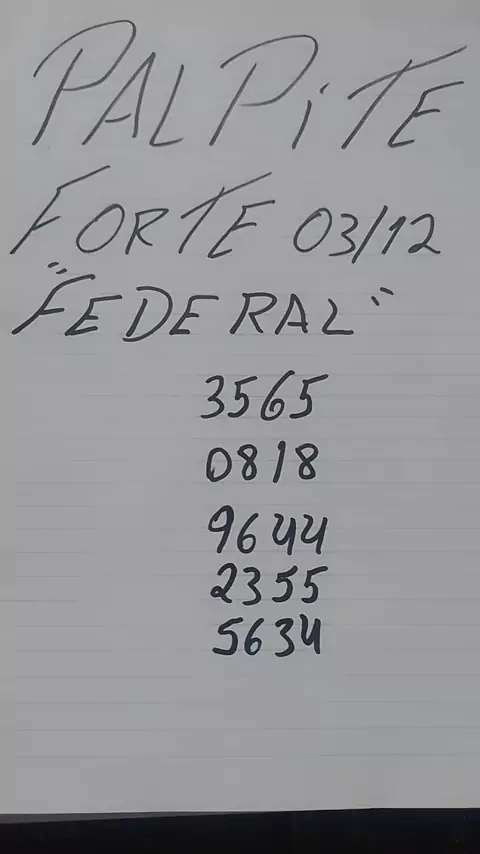 PALPiTE
FORTE 03/12
"FEDERAL"
3565
0818
9644
2355
5634